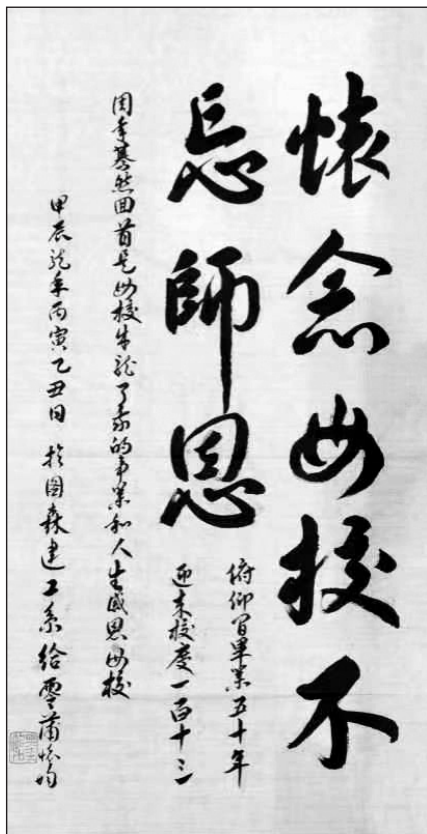 懷念母校不
忘師恩
俯仰間畢業五十年
迎来校慶一百十三
周年驀然回首是母校成就了我的事業和人生感恩母校
甲辰龍年丙寅乙丑日 於图森建工系給零蒲